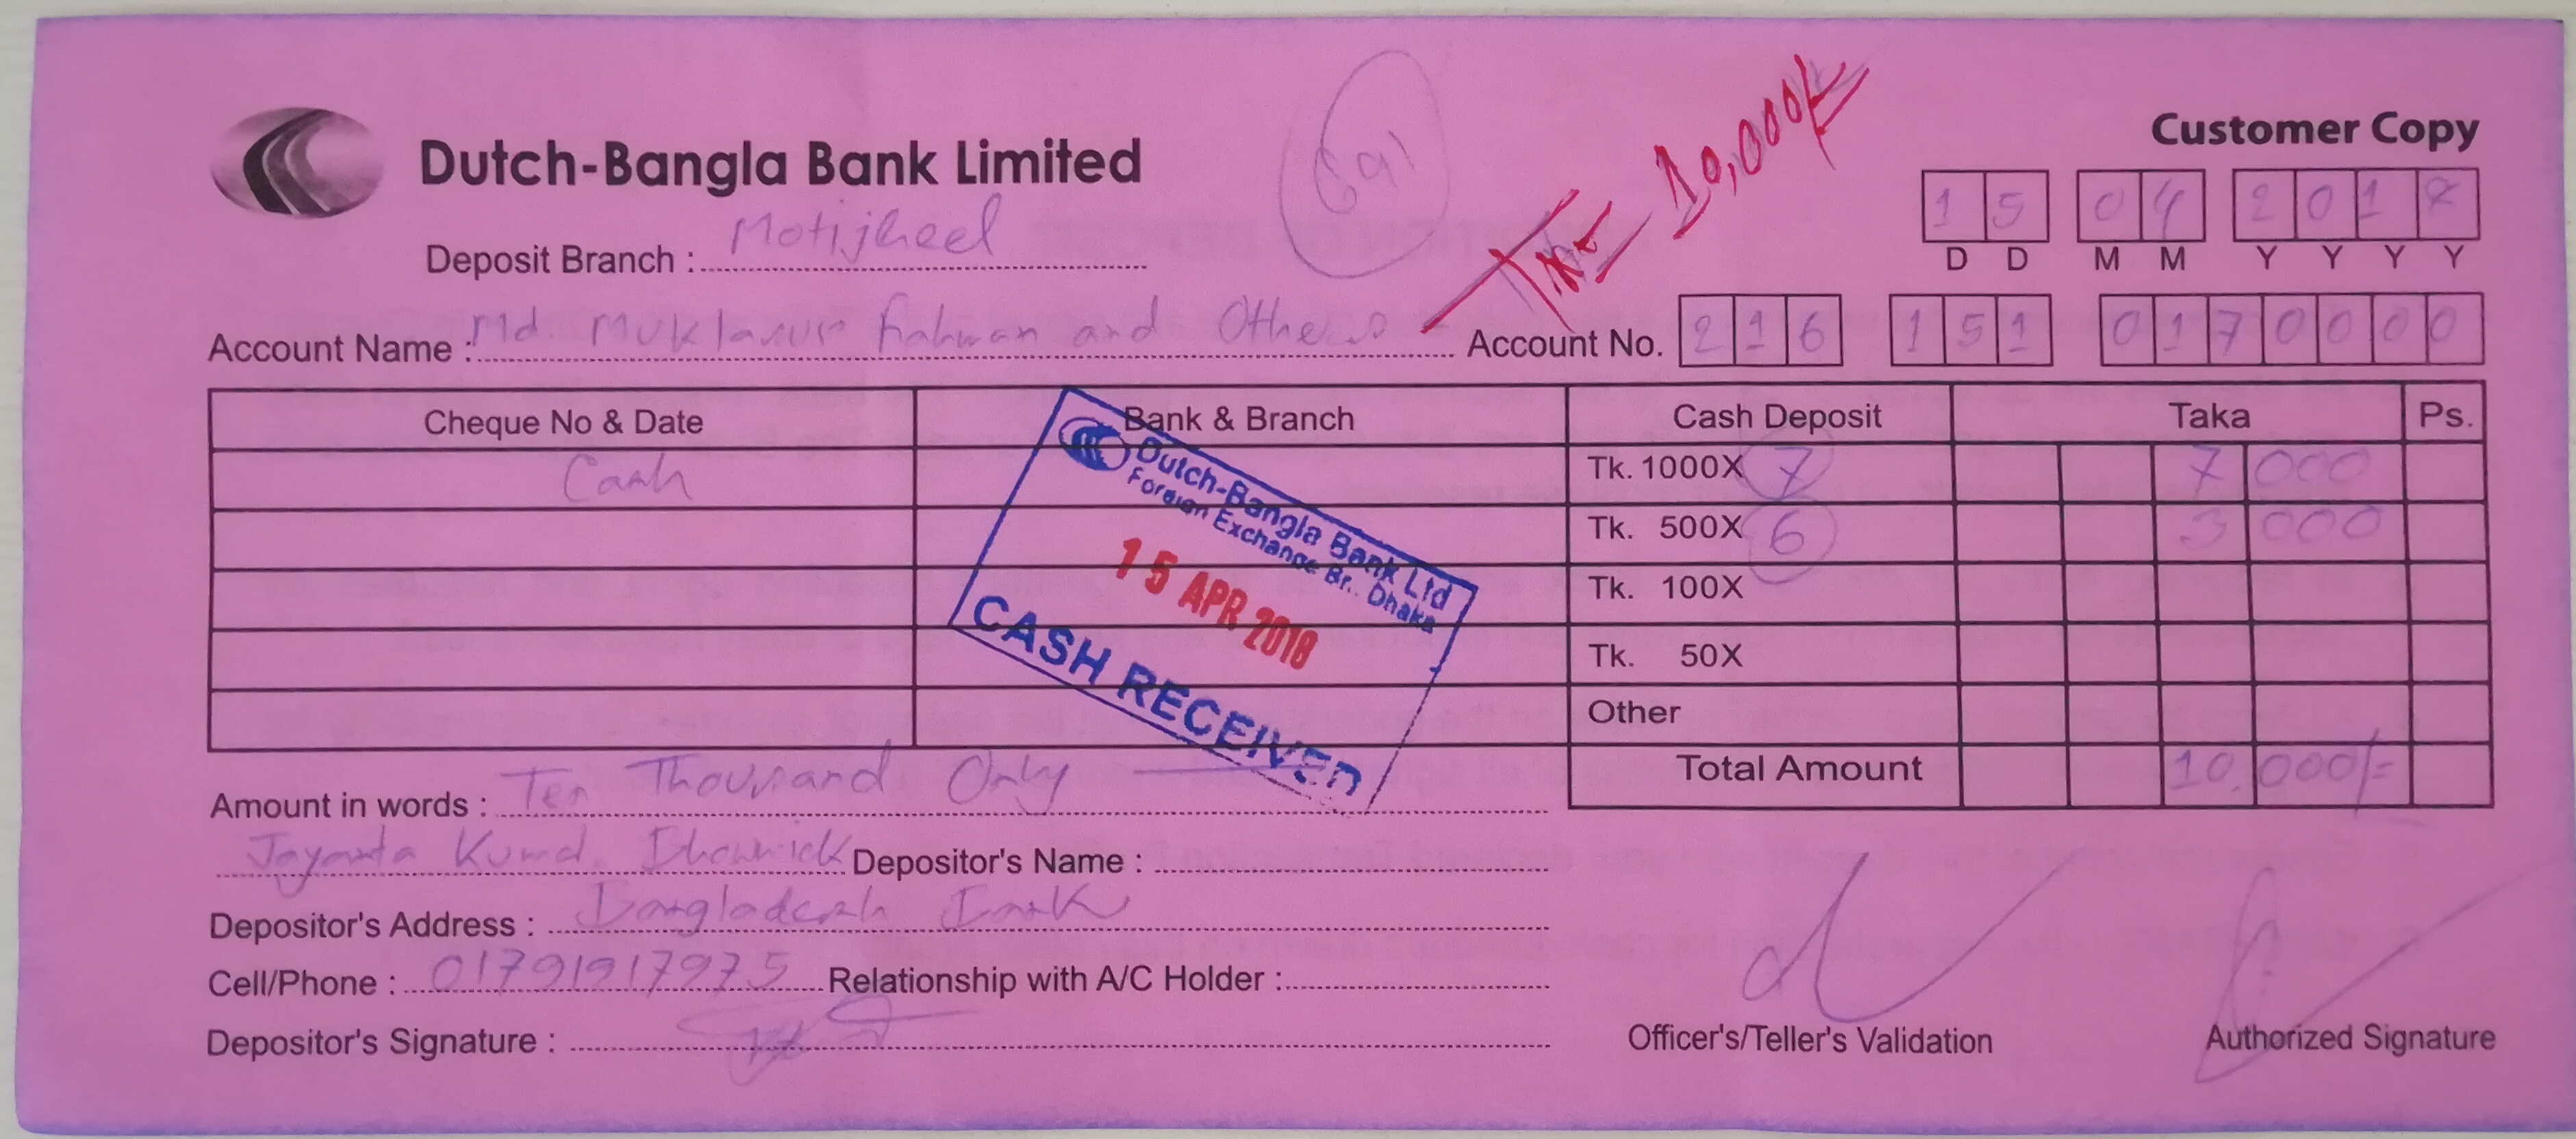 Customer Copy
Dutch-Bangla Bank Limited
Tk = 10,000/=
15 04 2018
D D M M Y Y Y Y
Deposit Branch : Motijheel
Account Name : Md. and Others
Account No. 216 151 0170000
Cheque No & Date Bank & Branch Cash Deposit Taka Ps.
Cash Tk. 1000X 7 7 000
Tk. 500X 6 3 000
Tk. 100X
Tk. 50X
Other
Total Amount 10,000/=
Dutch-Bangla Bank Ltd
Foreign Exchange Br. Dhaka
15 APR 2018
CASH RECEIVED
Amount in words : Ten Thousand Only
Jayanta Depositor's Name :
Depositor's Address : Bangladesh Bank
Cell/Phone : 01791917975 Relationship with A/C Holder :
Depositor's Signature :
Officer's/Teller's Validation Authorized Signature